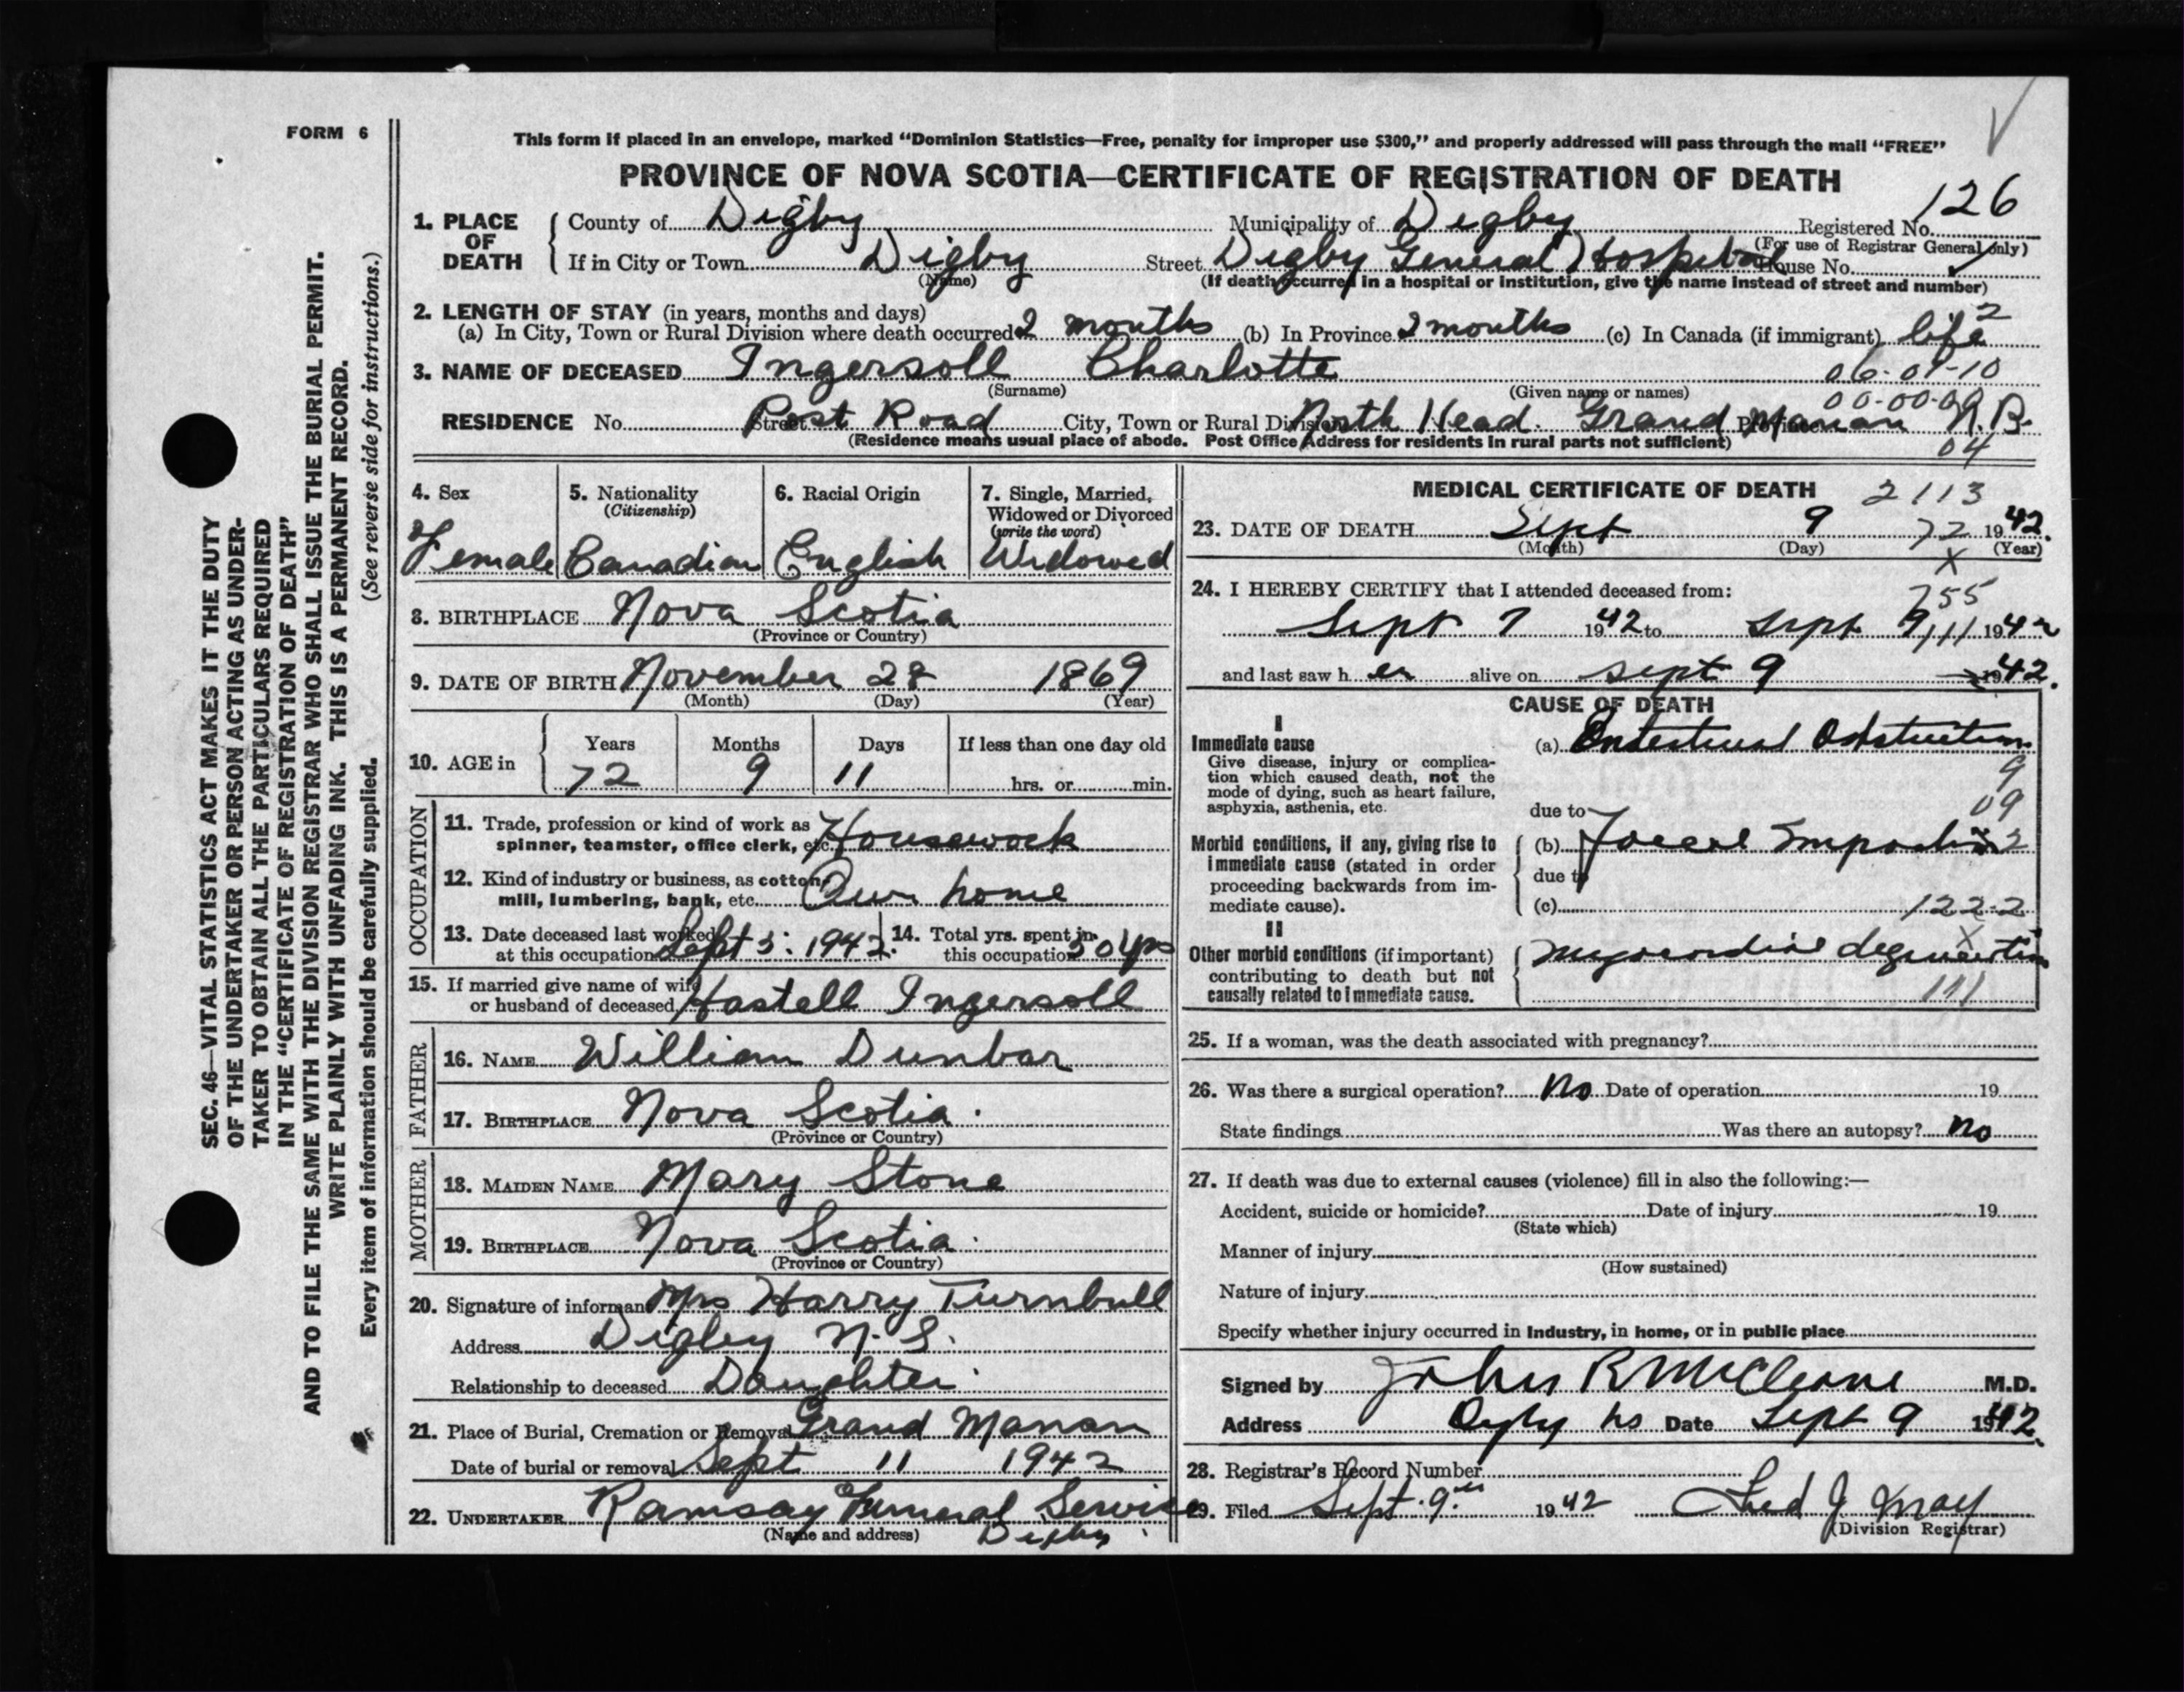 FORM 6
This form if placed in an envelope, marked “Dominion Statistics—Free, penalty for improper use $300,” and properly addressed will pass through the mail “FREE”
PROVINCE OF NOVA SCOTIA—CERTIFICATE OF REGISTRATION OF DEATH
126
1. PLACE OF DEATH County of Digby Municipality of Digby Registered No.
(For use of Registrar General only)
If in City or Town Digby Street Digby General Hospital House No.
(Name) (If death occurred in a hospital or institution, give the name instead of street and number)
2. LENGTH OF STAY (in years, months and days)
(a) In City, Town or Rural Division where death occurred 2 months (b) In Province 2 months (c) In Canada (if immigrant) life 2
3. NAME OF DECEASED Ingersoll Charlotte 06-09-10
(Surname) (Given name or names)
00-00-00
RESIDENCE No. Street Post Road City, Town or Rural Division North Head Grand Manan Province N.B.
(Residence means usual place of abode. Post Office Address for residents in rural parts not sufficient)
04
4. Sex 5. Nationality (Citizenship) 6. Racial Origin 7. Single, Married, Widowed or Divorced (write the word)
Female Canadian English Widowed
8. BIRTHPLACE Nova Scotia
(Province or Country)
9. DATE OF BIRTH November 28 1869
(Month) (Day) (Year)
10. AGE in Years Months Days If less than one day old
72 9 11 hrs. or min.
OCCUPATION
11. Trade, profession or kind of work as
spinner, teamster, office clerk, etc. Housework
12. Kind of industry or business, as cotton
mill, lumbering, bank, etc. Own home
13. Date deceased last worked at this occupation Sept 5: 1942. 14. Total yrs. spent in this occupation 50 yrs
15. If married give name of wife
or husband of deceased Hastell Ingersoll
FATHER
16. NAME William Dunbar
17. BIRTHPLACE Nova Scotia
(Province or Country)
MOTHER
18. MAIDEN NAME Mary Stone
19. BIRTHPLACE Nova Scotia
(Province or Country)
20. Signature of informant Mrs Harry Turnbull
Address Digby N.S.
Relationship to deceased Daughter
21. Place of Burial, Cremation or Removal Grand Manan
Date of burial or removal Sept 11 1942
22. UNDERTAKER Ramsay Funeral Service
(Name and address) Digby
MEDICAL CERTIFICATE OF DEATH 2113
23. DATE OF DEATH Sept 9 72 1942.
(Month) (Day) (Year)
X
24. I HEREBY CERTIFY that I attended deceased from:
755
Sept 7 1942 to Sept 9, 111 1942
and last saw her alive on Sept 9 1942.
CAUSE OF DEATH
I
Immediate cause (a) Intestinal Obstruction
Give disease, injury or complica-
tion which caused death, not the
mode of dying, such as heart failure,
asphyxia, asthenia, etc.
9
09
due to
Morbid conditions, if any, giving rise to (b) Foecal Impaction 2
immediate cause (stated in order
proceeding backwards from im-
mediate cause).
due to
(c) 122-2
X
II
Other morbid conditions (if important) myocardial degeneration
contributing to death but not
causally related to immediate cause.
111
25. If a woman, was the death associated with pregnancy?
26. Was there a surgical operation? No Date of operation 19
State findings Was there an autopsy? No
27. If death was due to external causes (violence) fill in also the following:—
Accident, suicide or homicide? Date of injury 19
(State which)
Manner of injury
(How sustained)
Nature of injury
Specify whether injury occurred in Industry, in home, or in public place
Signed by John R M.D.
Address Digby NS Date Sept 9 1942.
28. Registrar's Record Number
29. Filed Sept. 9th 1942 Fred J May
(Division Registrar)
SEC. 46—VITAL STATISTICS ACT MAKES IT THE DUTY
OF THE UNDERTAKER OR PERSON ACTING AS UNDER-
TAKER TO OBTAIN ALL THE PARTICULARS REQUIRED
IN THE “CERTIFICATE OF REGISTRATION OF DEATH”
AND TO FILE THE SAME WITH THE DIVISION REGISTRAR WHO SHALL ISSUE THE BURIAL PERMIT.
WRITE PLAINLY WITH UNFADING INK. THIS IS A PERMANENT RECORD.
Every item of information should be carefully supplied. (See reverse side for instructions.)